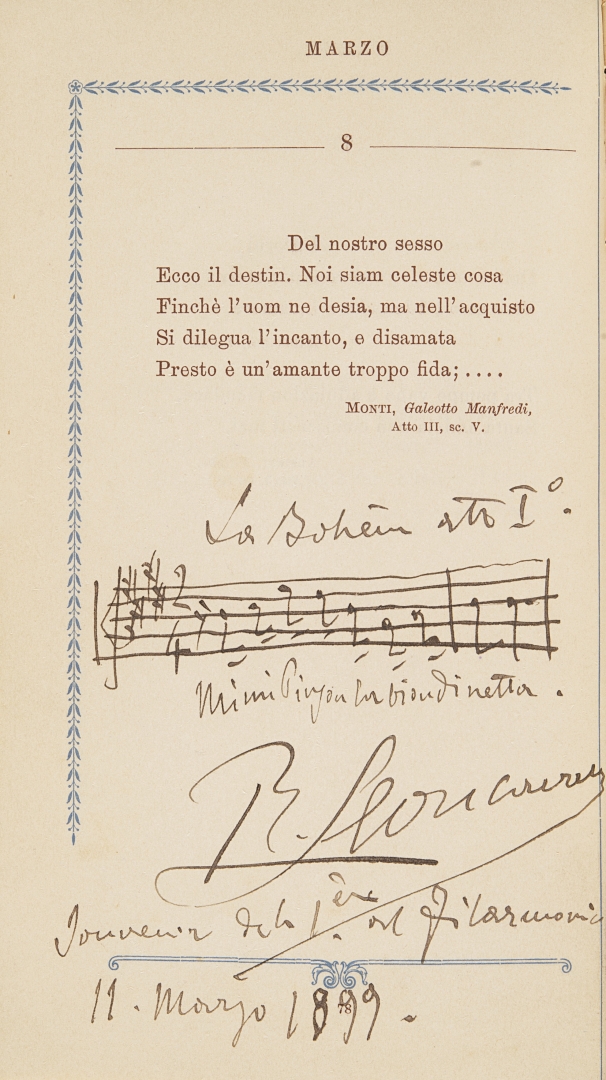 MARZO
8
Del nostro sesso
Ecco il destin. Noi siam celeste cosa
Finchè l'uom ne desia, ma nell'acquisto
Si dilegua l'incanto, e disamata
Presto è un'amante troppo fida; ....
MONTI, Galeotto Manfredi,
Atto III, sc. V.
La Bohèm atto I°.
Mimi Pinson la biondinetta.
R. Leoncavallo
Souvenir della 1ère al Filarmonico
78
11. Marzo 1899.